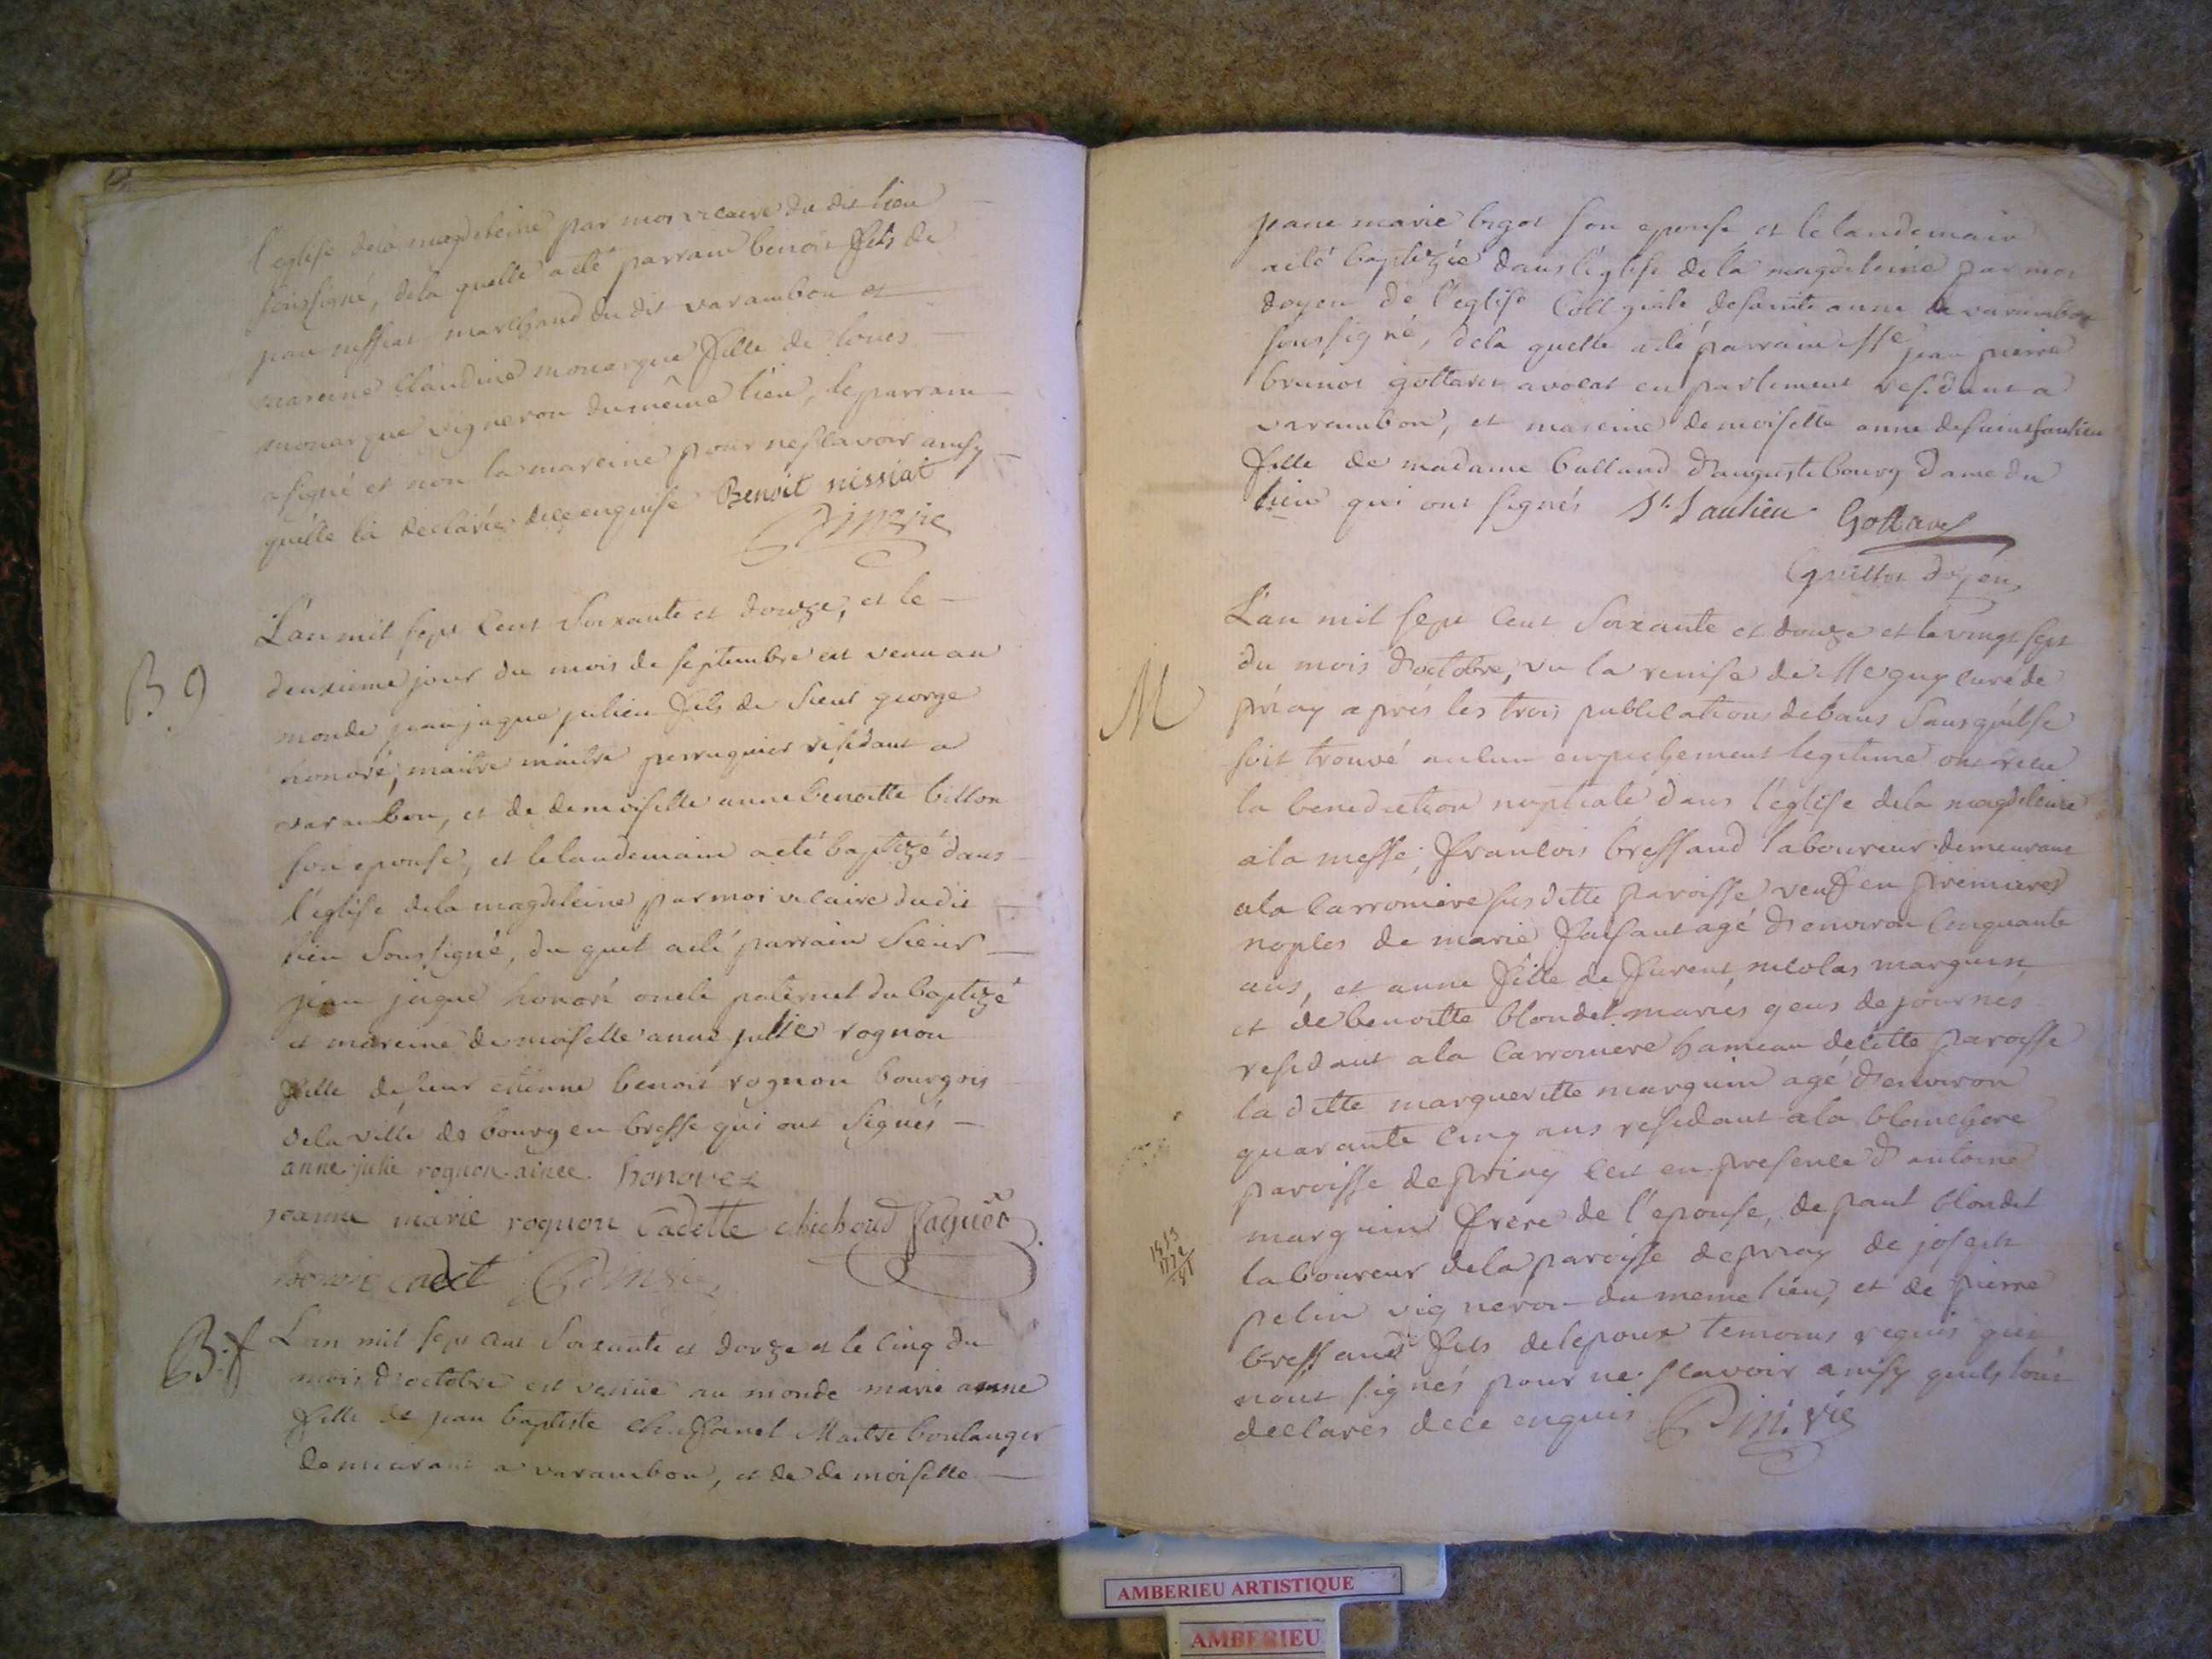 l'eglise dela magdeleine par moi vicaire du dit lieu
soussigné, dela quelle a eté parrain benoit fils de
jean nissiat marchand du dit varambon et
mareine Claudine monarque fille de loues
monarque vigneron du même lieu, le parrain
a signé et non la mareine pour ne sçavoir ainsy
qu'elle la declarée dece enquise Benoit nissiat
L'an mil sept Cent Soixante et douze, et le
B g deuxieme jour du mois de septembre est venu au
monde jean jaque julien fils de Sieur george
honoré, maitre maitre perruquier residant a
varambon, et de demoiselle anne benoitte billon
son epouse, et lelandemain a eté baptizé dans
l'eglise dela magdeleine par moi vicaire dudit
lieu Soussigné, du quel a eté parrain Sieur
jean jaque honoré oncle paternel du baptizé
et mareine demoiselle anne julie rognon
fille de sieur etienne benoit rognon bourgois
dela ville de bourg en bresse qui ont Signés
anne julie rognon ainee. honorez
jeanne marie rognon Cadette chichoud faguet
cadet
B. f L'an mil sept cent Soixante et douze et le cinq du
mois d'octobre est venue au monde marie anne
fille de jean baptiste Maitre boulanger
demeurant a varambon, et de demoiselle
jane marie bigot son epouse et le landemain
a eté baptizée dans l'eglise dela magdeleine par moi
doyen de l'eglise Collegiale de sainte anne de varambon
soussigné, dela quelle a eté parrain jean pierre
brunot gottaret avocat en parlement residant a
varambon, et mareine demoiselle anne de saint saulieu
fille de madame balland d'augustebourg dame du
lieu qui ont signés St. Saulieu Gottaret
Guillot doyen
L'an mil sept Cent Soixante et douze et le vingt sept
M du mois d'octobre, vu la remise de Mre guy curé de
priay après les trois publications de bans Sans qu'il se
soit trouvé aulcun empechement legitime ont recu
la benediction nuptiale dans l'eglise dela magdeleine
a la messe, francois bressand laboureur demeurant
ala Carroniere susditte paroisse veuf en premieres
noples de marie faisant agé d'environ Cinquante
ans, et anne fille de furent nicolas marguin
et de benoitte blondet mariés gens de journés
residant ala Carroniere hameau de cette paroisse
la ditte margueritte marguin agé d'environ
quarante Cinq ans residant ala blanchere
paroisse de priay Cest en presence d'antoine
marguin frere de l'epouse, de paul blondet
1813
1772
laboureur dela paroisse de priay de joseph
41
pelin vigneron du meme lieu, et de pierre
bressand fils de lepoux temoins requis qui
nont signés pour ne sçavoir ainsy quils lont
declarés dece enquis
AMBERIEU ARTISTIQUE
AMBERIEU